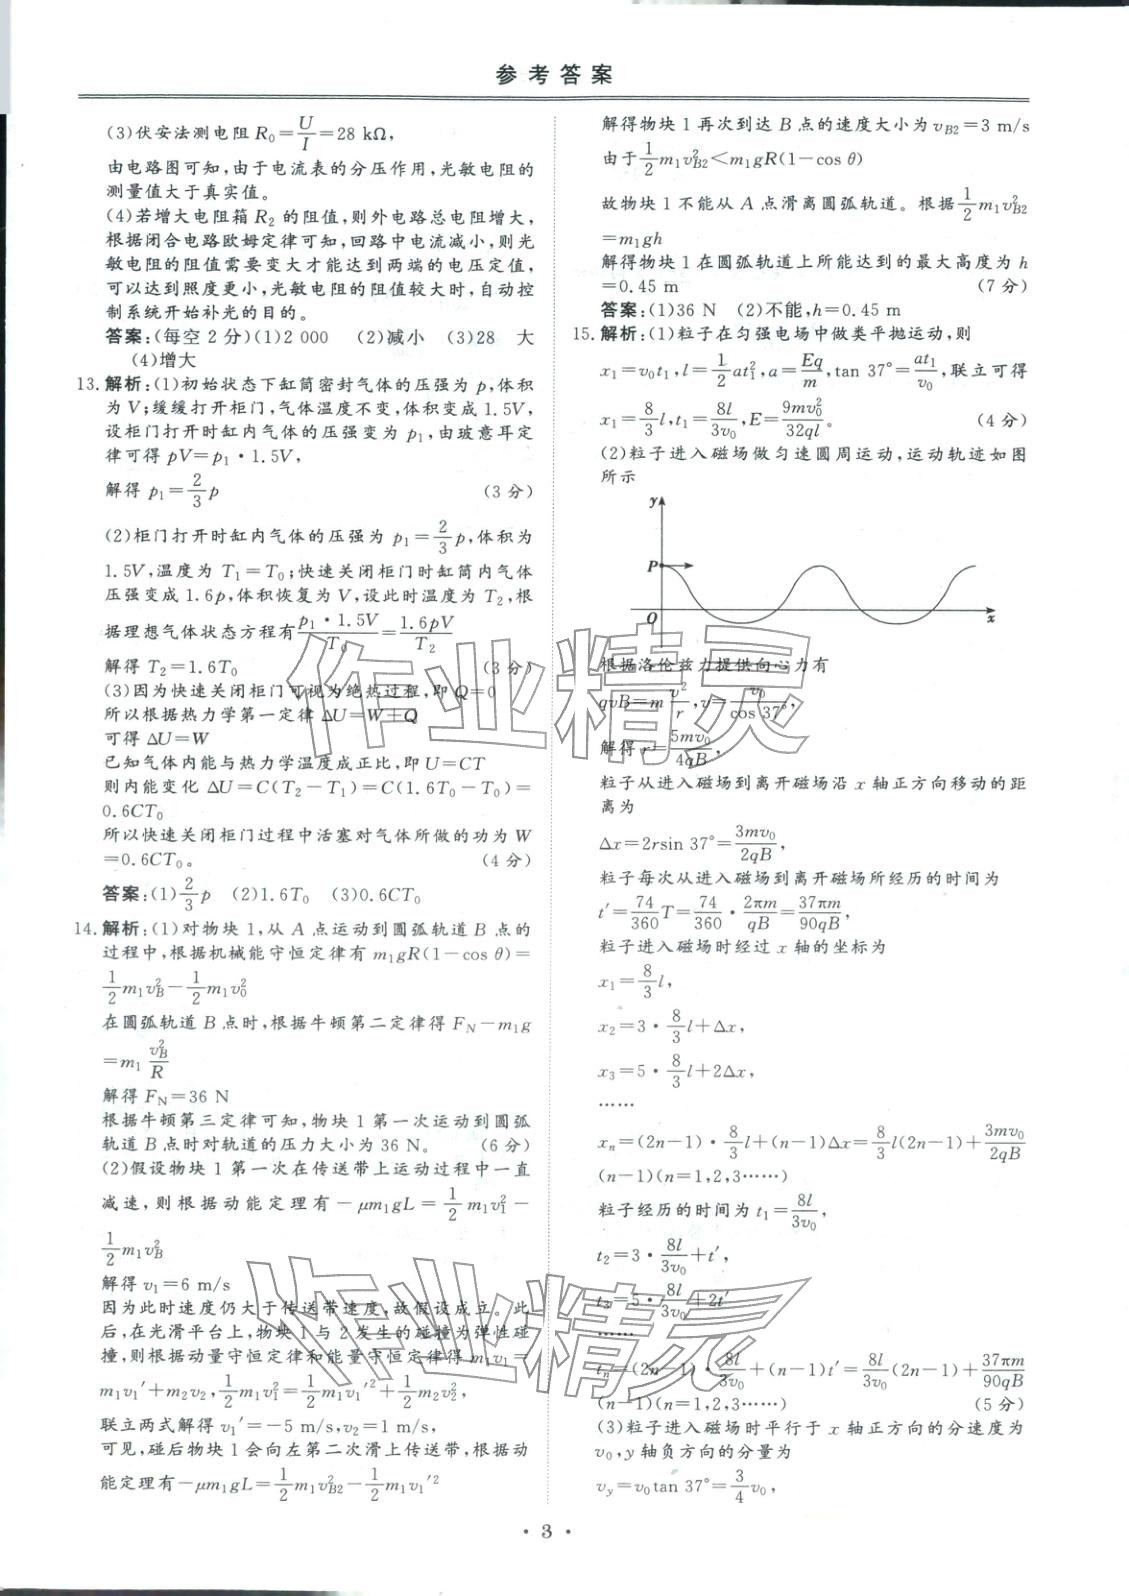 参考答案
(3)伏安法测电阻 R₀=U/I=28 kΩ,
由电路图可知,由于电流表的分压作用,光敏电阻的
测量值大于真实值。
(4)若增大电阻箱 R₂ 的阻值,则外电路总电阻增大,
根据闭合电路欧姆定律可知,回路中电流减小,则光
敏电阻的阻值需要变大才能达到两端的电压定值,
可以达到照度更小,光敏电阻的阻值较大时,自动控
制系统开始补光的目的。
答案:(每空 2 分)(1)2 000 (2)减小 (3)28 大
(4)增大
13. 解析:(1)初始状态下缸筒密封气体的压强为 p,体积
为 V;缓缓打开柜门,气体温度不变,体积变成 1.5V,
设柜门打开时缸内气体的压强变为 p₁,由玻意耳定
律可得 pV=p₁·1.5V,
解得 p₁=2/3 p (3 分)
(2)柜门打开时缸内气体的压强为 p₁=2/3 p,体积为
1.5V,温度为 T₁=T₀;快速关闭柜门时缸筒内气体
压强变成 1.6p,体积恢复为 V,设此时温度为 T₂,根
据理想气体状态方程有 p₁·1.5V/T₀=1.6pV/T₂
解得 T₂=1.6T₀ (3 分)
(3)因为快速关闭柜门可视为绝热过程,即 Q=0
所以根据热力学第一定律 ΔU=W+Q
可得 ΔU=W
已知气体内能与热力学温度成正比,即 U=CT
则内能变化 ΔU=C(T₂-T₁)=C(1.6T₀-T₀)=
0.6CT₀
所以快速关闭柜门过程中活塞对气体所做的功为 W
=0.6CT₀。 (4 分)
答案:(1)2/3 p (2)1.6T₀ (3)0.6CT₀
14. 解析:(1)对物块 1,从 A 点运动到圆弧轨道 B 点的
过程中,根据机械能守恒定律有 m₁gR(1-cos θ)=
1/2 m₁v_B²-1/2 m₁v₀²
在圆弧轨道 B 点时,根据牛顿第二定律得 F_N-m₁g
=m₁ v_B²/R
解得 F_N=36 N
根据牛顿第三定律可知,物块 1 第一次运动到圆弧
轨道 B 点时对轨道的压力大小为 36 N。 (6 分)
(2)假设物块 1 第一次在传送带上运动过程中一直
减速,则根据动能定理有-μm₁gL=1/2 m₁v₁²-
1/2 m₁v_B²
解得 v₁=6 m/s
因为此时速度仍大于传送带速度,故假设成立。此
后,在光滑平台上,物块 1 与 2 发生的碰撞为弹性碰
撞,则根据动量守恒定律和能量守恒定律得 m₁v₁=
m₁v₁′+m₂v₂,1/2 m₁v₁²=1/2 m₁v₁′²+1/2 m₂v₂²,
联立两式解得 v₁′=-5 m/s,v₂=1 m/s,
可见,碰后物块 1 会向左第二次滑上传送带,根据动
能定理有-μm₁gL=1/2 m₁v_B2²-1/2 m₁v₁′²
解得物块 1 再次到达 B 点的速度大小为 v_B2=3 m/s
由于1/2 m₁v_B2²<m₁gR(1-cos θ)
故物块 1 不能从 A 点滑离圆弧轨道。根据1/2 m₁v_B2²
=m₁gh
解得物块 1 在圆弧轨道上所能达到的最大高度为 h
=0.45 m (7 分)
答案:(1)36 N (2)不能,h=0.45 m
15. 解析:(1)粒子在匀强电场中做类平抛运动,则
x₁=v₀t₁,l=1/2 at₁²,a=Eq/m,tan 37°=at₁/v₀,联立可得
x₁=8/3 l,t₁=8l/3v₀,E=9mv₀²/32ql。 (4 分)
(2)粒子进入磁场做匀速圆周运动,运动轨迹如图
所示
y
P
O
x
根据洛伦兹力提供向心力有
qvB=m v²/r,v=v₀/cos 37°,
解得 r=5mv₀/4qB,
粒子从进入磁场到离开磁场沿 x 轴正方向移动的距
离为
Δx=2rsin 37°=3mv₀/2qB,
粒子每次从进入磁场到离开磁场所经历的时间为
t′=74/360 T=74/360·2πm/qB=37πm/90qB,
粒子进入磁场时经过 x 轴的坐标为
x₁=8/3 l,
x₂=3·8/3 l+Δx,
x₃=5·8/3 l+2Δx,
……
xₙ=(2n-1)·8/3 l+(n-1)Δx=8/3 l(2n-1)+3mv₀/2qB
(n-1)(n=1,2,3……)
粒子经历的时间为 t₁=8l/3v₀,
t₂=3·8l/3v₀+t′,
t₃=5·8l/3v₀+2t′
……
tₙ=(2n-1)·8l/3v₀+(n-1)t′=8l/3v₀(2n-1)+37πm/90qB
(n-1)(n=1,2,3……) (5 分)
(3)粒子进入磁场时平行于 x 轴正方向的分速度为
v₀,y 轴负方向的分量为
v_y=v₀tan 37°=3/4 v₀,
作业精灵
作业精灵
· 3 ·